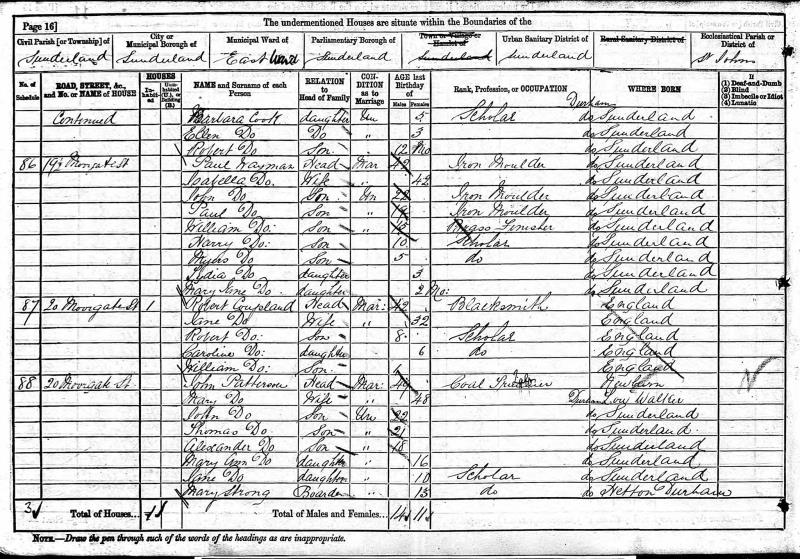 The undermentioned Houses are situate within the Boundaries of the
Page 16]
Civil Parish [or Township] of
Sunderland
City or Municipal Borough of
Sunderland
Municipal Ward of
East
Parliamentary Borough of
Sunderland
Town or Village or Hamlet of
Sunderland
Urban Sanitary District of
Sunderland
Rural Sanitary District of
Ecclesiastical Parish or District of
St Johns
No. of Schedule
ROAD, STREET, &c., and No. or NAME of HOUSE
HOUSES
Inhabited
Uninhabited (U.), or Building (B.)
NAME and Surname of each Person
RELATION to Head of Family
CONDITION as to Marriage
AGE last Birthday of
Males
Females
Rank, Profession, or OCCUPATION
WHERE BORN
If
(1) Deaf-and-Dumb
(2) Blind
(3) Imbecile or Idiot
(4) Lunatic
Continued Barbara Cook daughter Un 5 Scholar Durham do Sunderland
Ellen Do Do " 3 do Sunderland
Robert Do Son " 12 Mo do Sunderland
86 19 Moorgate St Paul Wayman Head Mar 42 Iron Moulder do Sunderland
Isabella Do Wife " 42 do Sunderland
John Do Son Un 22 Iron Moulder do Sunderland
Paul Do Son " 19 Iron Moulder do Sunderland
William Do: Son " Brass Finisher do Sunderland
Harry Do: Son " 10 Scholar do Sunderland
Do Son " 5 do do Sunderland
Lydia Do daughter 3 do Sunderland
Mary Jane Do daughter 2 Mo: do Sunderland
87 20 Moorgate St 1 Robert Coupland Head Mar: 42 Blacksmith England
Jane Do Wife " 32 England
Robert Do: Son " 8 Scholar England
Caroline Do: daughter 6 do England
William Do: Son England
88 20 Moorgate St. John Patterson Head Mar: 49 Coal
Mary Do Wife " 48 Durham Low Walker
John Do Son Un 22 do Sunderland
Thomas Do Son " 21 do Sunderland
Alexander Do Son " 18 do Sunderland
Mary Ann Do daughter " 16 do Sunderland
Jane Do daughter " 10 Scholar do Sunderland
Mary Strong Boarder " 13 do do Hetton Durham
3 Total of Houses... 1 Total of Males and Females... 14 11
NOTE.—Draw the pen through such of the words of the headings as are inappropriate.